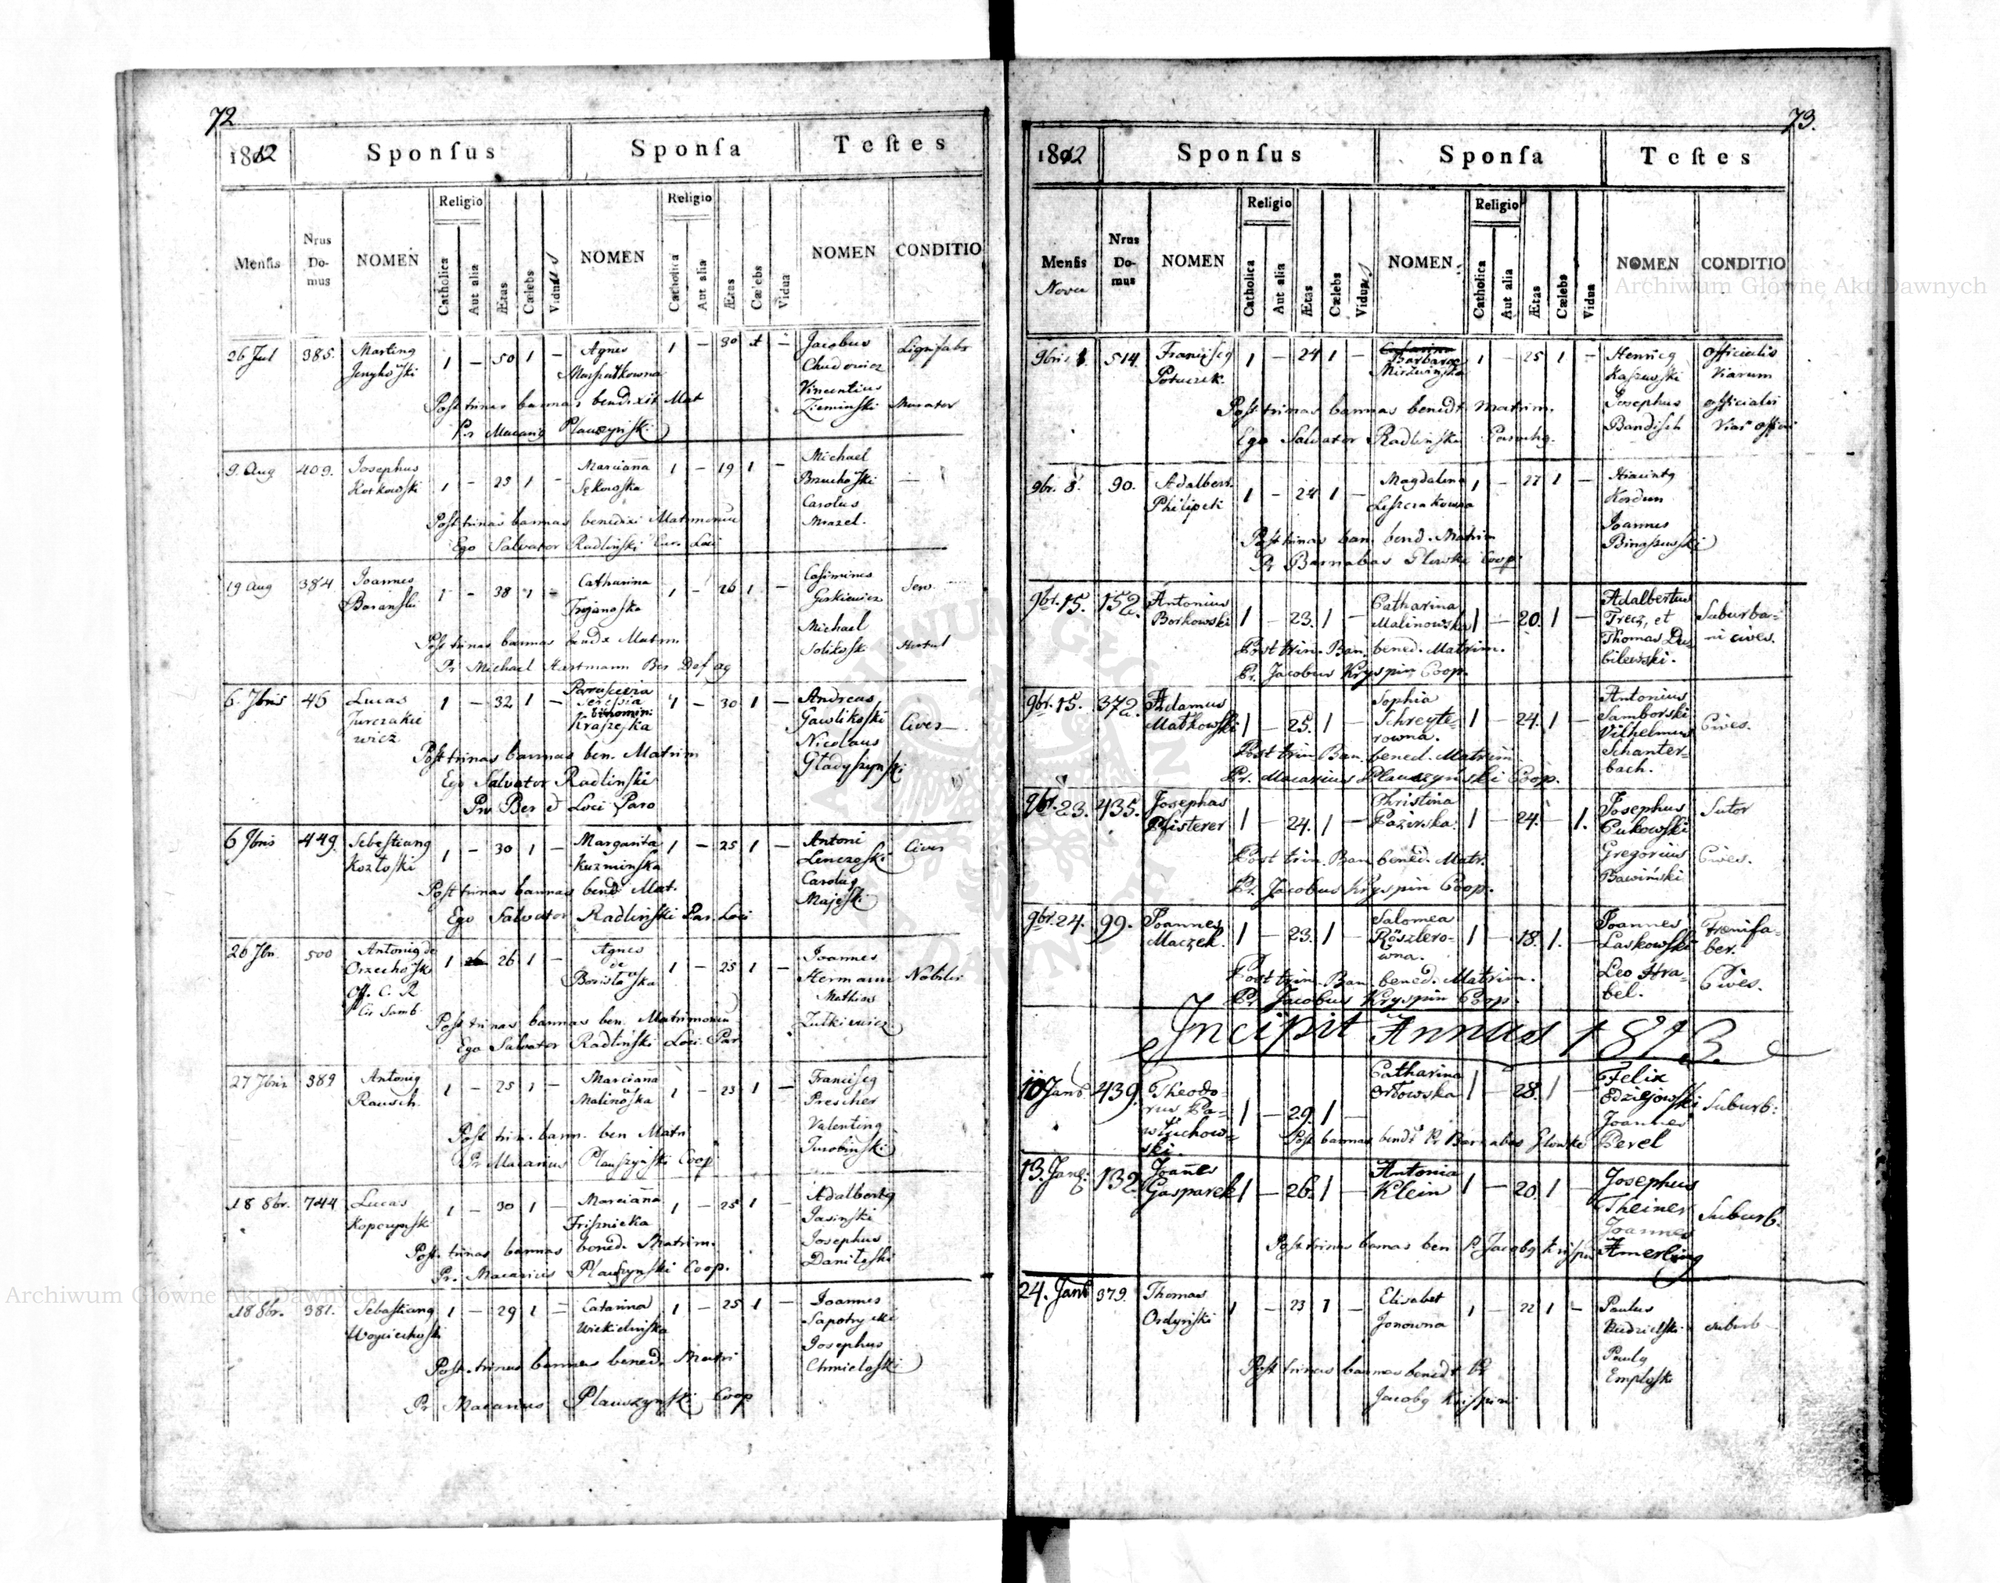 72
1812 Sponſus Sponſa Teſtes
Menſis Nrus Domus NOMEN Religio Catholica Aut alia Ætas Cælebs Viduus NOMEN Religio Catholica Aut alia Ætas Cælebs Vidua NOMEN CONDITIO
26 Jul 385. 1 – 50 1 – Agnes 1 – 30 1 – Jacobus
Chudowicz
Vincentius
Zieminski Murator
Post trinas bannas bendixit Mat
Pr
9. Aug 409. Josephus
Korkowski 1 – 23 1 – Marcianna
Sękowska 1 – 19 1 – Michael
Carolus
Mrazel.
Post trinas bannas benedixi Matrimoniu
Ego Salvator Radlinski Cur. Loci
19 Aug 384 Joannes
Baranski 1 – 38 1 – Catharina
Trojanoska 1 – 26 1 – Casimirus
Gorkiewicz
Michael
Solikoski
Post trinas bannas Matrim.
Pr Michael Hartmann
6. 7bris 46 Lucas
Jurczakie
wicz 1 – 32 1 – 1 – 30 1 – Andreas
Gawlikoski
Nicolaus
Gładyszynski Cives
Post trinas bannas ben. Matrim
Ego Salvator Radlinski
Loci Paro
6 7bris 449. Sebastiang
Kozłoski 1 – 30 1 – Margarita
Kuzminska 1 – 25 1 – Antoni
Lenczoski
Carolug
Majeski Cives
Post trinas bannas bend. Mat.
Ego Salvator Radlinski Par. Loci
26 7br. 500 Antonig de
Orzechoski
Off. C. R
Cir Samb. 1 26 1 – Agnes
de
Borisławska 1 – 25 1 – Joannes
Hermann
Mathias
Zulkiewicz Nobiles
Post trinas bannas ben. Matrimonium
Ego Salvator Radlinski Loci Par
27 7bris 389 Antonig
Rausch. 1 – 25 1 – Marcianna
Malinoska 1 – 23 1 – Franciscg
Prescher
Valenting
Post trin. bann. ben Matri
Pr Macarius Plauszynski Coop
18 8br. 744 Lucas
Kopczynski 1 – 30 1 – Marcianna 1 – 25 1 – Adalbertg
Jasinski
Josephus
Daniłoski
Post. trinas bannas bened. Matrim.
Pr. Macarius Plauszynski Coop.
18 8br. 381. Sebastiang
Woyciechoski 1 – 29 1 – Catarina 1 – 25 1 – Joannes
Josephus
Chmieloski
Post trinas bannas bened. Matri
Pr Macarius Plauszynski Coop
73.
1812 Sponſus Sponſa Teſtes
Menſis Nrus Domus NOMEN Religio Catholica Aut alia Ætas Cælebs Viduus NOMEN Religio Catholica Aut alia Ætas Cælebs Vidua NOMEN CONDITIO
514. Franciscg
Potuczek. 1 – 24 1 – Barbara 1 – 25 1 – Henricg
Kaszewski
Josephus
Bandisch Officialis
Viarum
officialis
Post trinas bannas benedt Matrim.
Ego Salvator Radlinski Parochg.
9br. 8. 90. Adalbert.
Philipek 1 – 24 1 – Magdalena
Leszczakowna 1 – 27 1 – Hiacintg
Kordun
Joannes
Binaszewski
Post trinas ban. bend. Matrim
Pr Barnabas Glowski Coop
9br. 15. 152. Antonius
Borkowski 1 – 23. 1 – Catharina
Malinowska 1 – 20. 1 – Adalbertus
Trecz, et
Thomas Du-
bilewski. Suburba-
ni cives.
Post trin. Ban. bened. Matrim.
Pr. Jacobus Kryspin Coop.
9br. 15. 372. Adamus
Matkowski 1 – 25. 1 – Sophia
Schreyte-
rowna. 1 – 24. 1 – Antonius
Samborski
Vilhelmus
Schanter-
bach. Cives.
Post trin. Ban. bened. Matrim
Pr. Macarius Plauszynski Coop.
9br. 23. 435. Josephas
Pfisterer 1 – 24. 1 – Christina
Pazirska. 1 – 24. – 1. Josephus
Cukowski
Gregorius
Bawinski Sutor
Cives.
Post trin. Ban. bened. Matr.
Pr. Jacobus Kryspin Coop.
9br. 24. 99. Joannes
Maczek. 1 – 23. 1 – Salomea
Röszlero-
wna. 1 – 18. 1. – Joannes
Laskowski
Leo Hra-
bel. Frenifa-
ber.
Cives.
Post trin. Ban. bened. Matrim.
Pr. Jacobus Kryspin Coop.
Incipit Annus 1813.
10 Jan 439. Theodo-
rus Pa-
wluchow-
ski. 1 – 29. 1 – Catharina
Orłowska 1 – 28. 1 – Felix
Joannes
Perel Suburb:
Post bannas bendt Pr Barnabas Glowski
13. Jan. 132. Joañes
Gasparek 1 – 26. 1 – Antonia
Klein 1 – 20. 1 – Josephus
Theiner
Joannes
Amerling Suburb.
Post trinas bannas ben P. Jacobg
24. Jan 379. Thomas
Ordynski 1 – 23 1 – Elisabet
Jonowna 1 – 22 1 – Paulus
Paulg suburb
Post trinas bannas benedt Pr
Jacobg Krispin
Archiwum Główne Akt Dawnych
Archiwum Główne Akt Dawnych